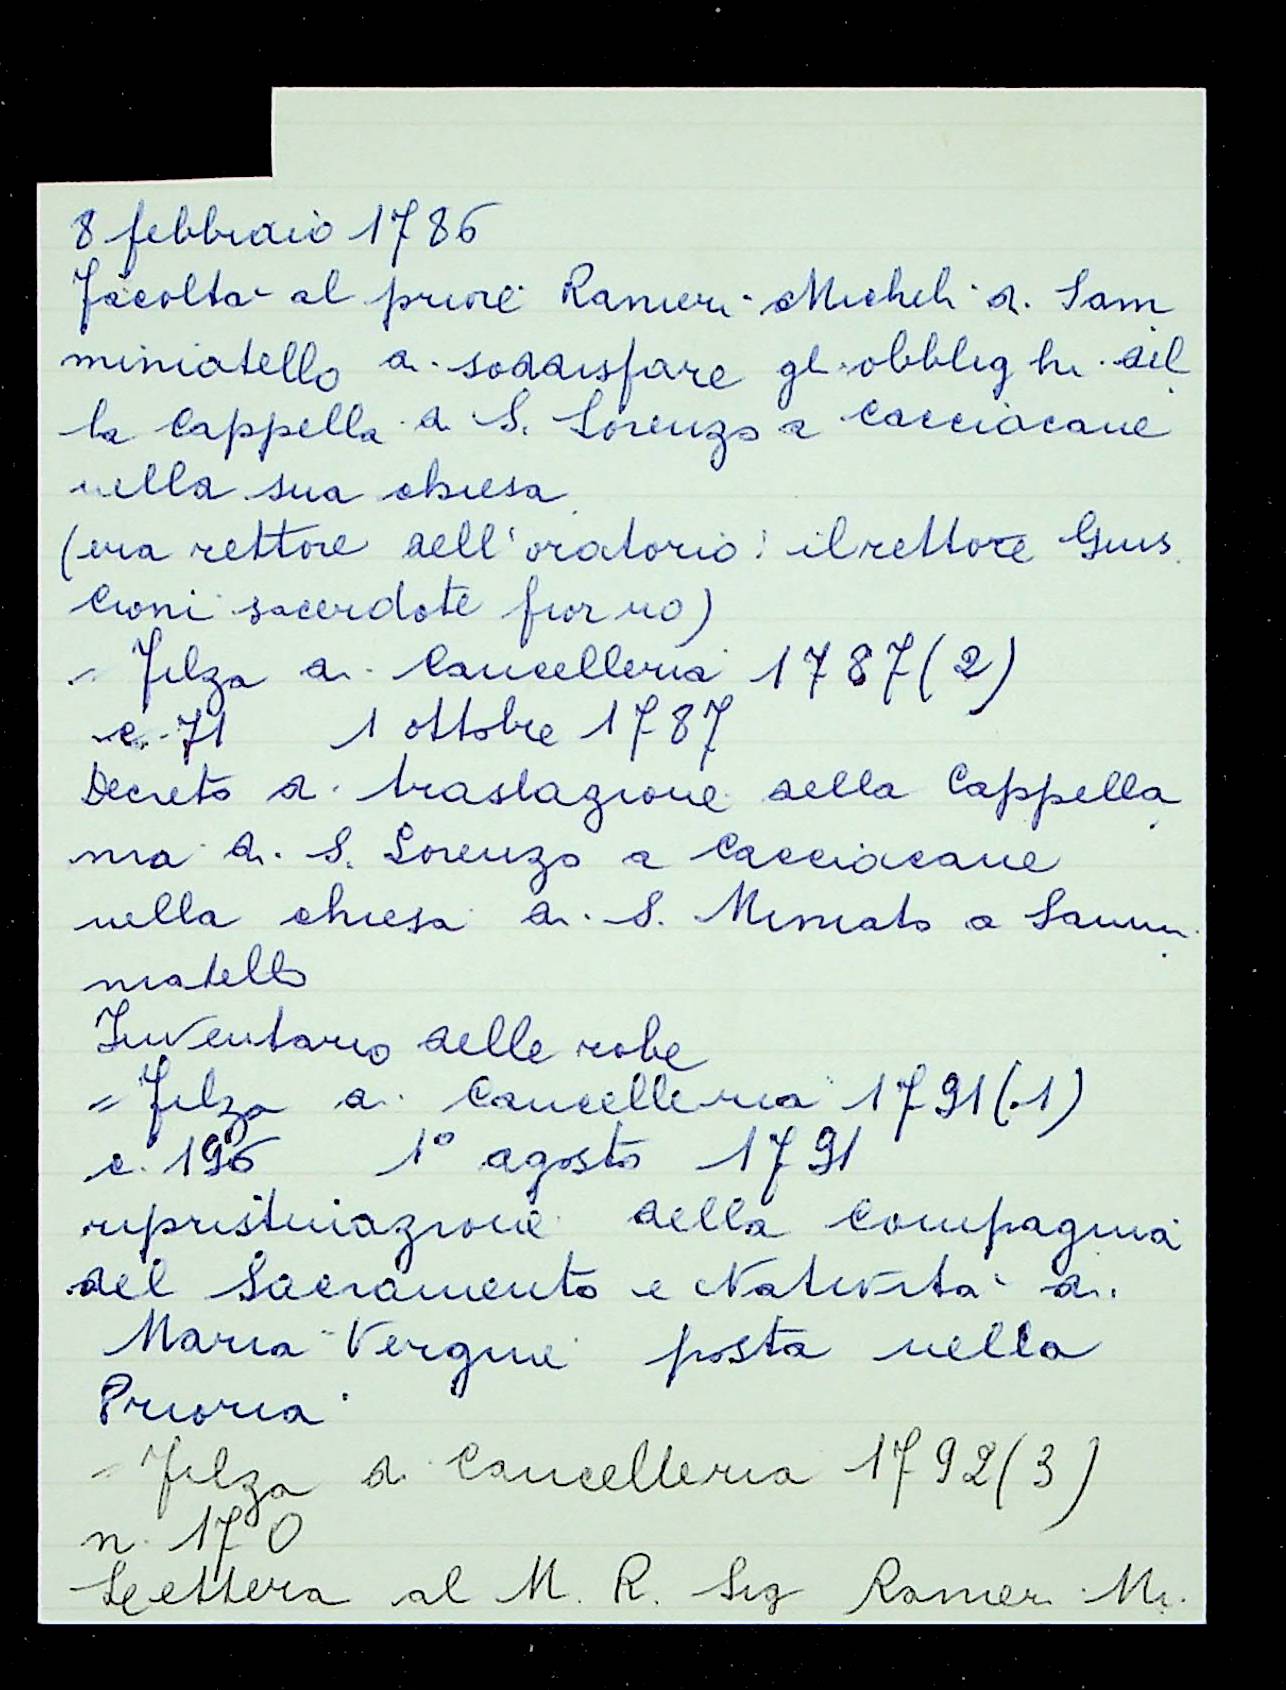 8 febbraio 1786
Facoltà al priore Ranieri Micheli di Sam
miniatello di soddisfare gli obblighi del
la Cappella di S. Lorenzo a Cacciacane
nella sua chiesa
(era rettore dell'oratorio: il rettore Gius.
Cioni sacerdote fior.no)
- Filza di Cancelleria 1787 (2)
c. 71 1 ottobre 1787
Decreto di traslazione della Cappella
nia di S. Lorenzo a Cacciacane
nella chiesa di S. Miniato a Sammi
niatello
Inventario delle robe
= Filza di Cancelleria 1791 (1)
c. 196 1° agosto 1791
ripristinazione della compagnia
del Sacramento e Natività di
Maria Vergine posta nella
Prioria
- Filza di Cancelleria 1792 (3)
n. 170
Lettera al M. R. Sig Ranieri Mi.